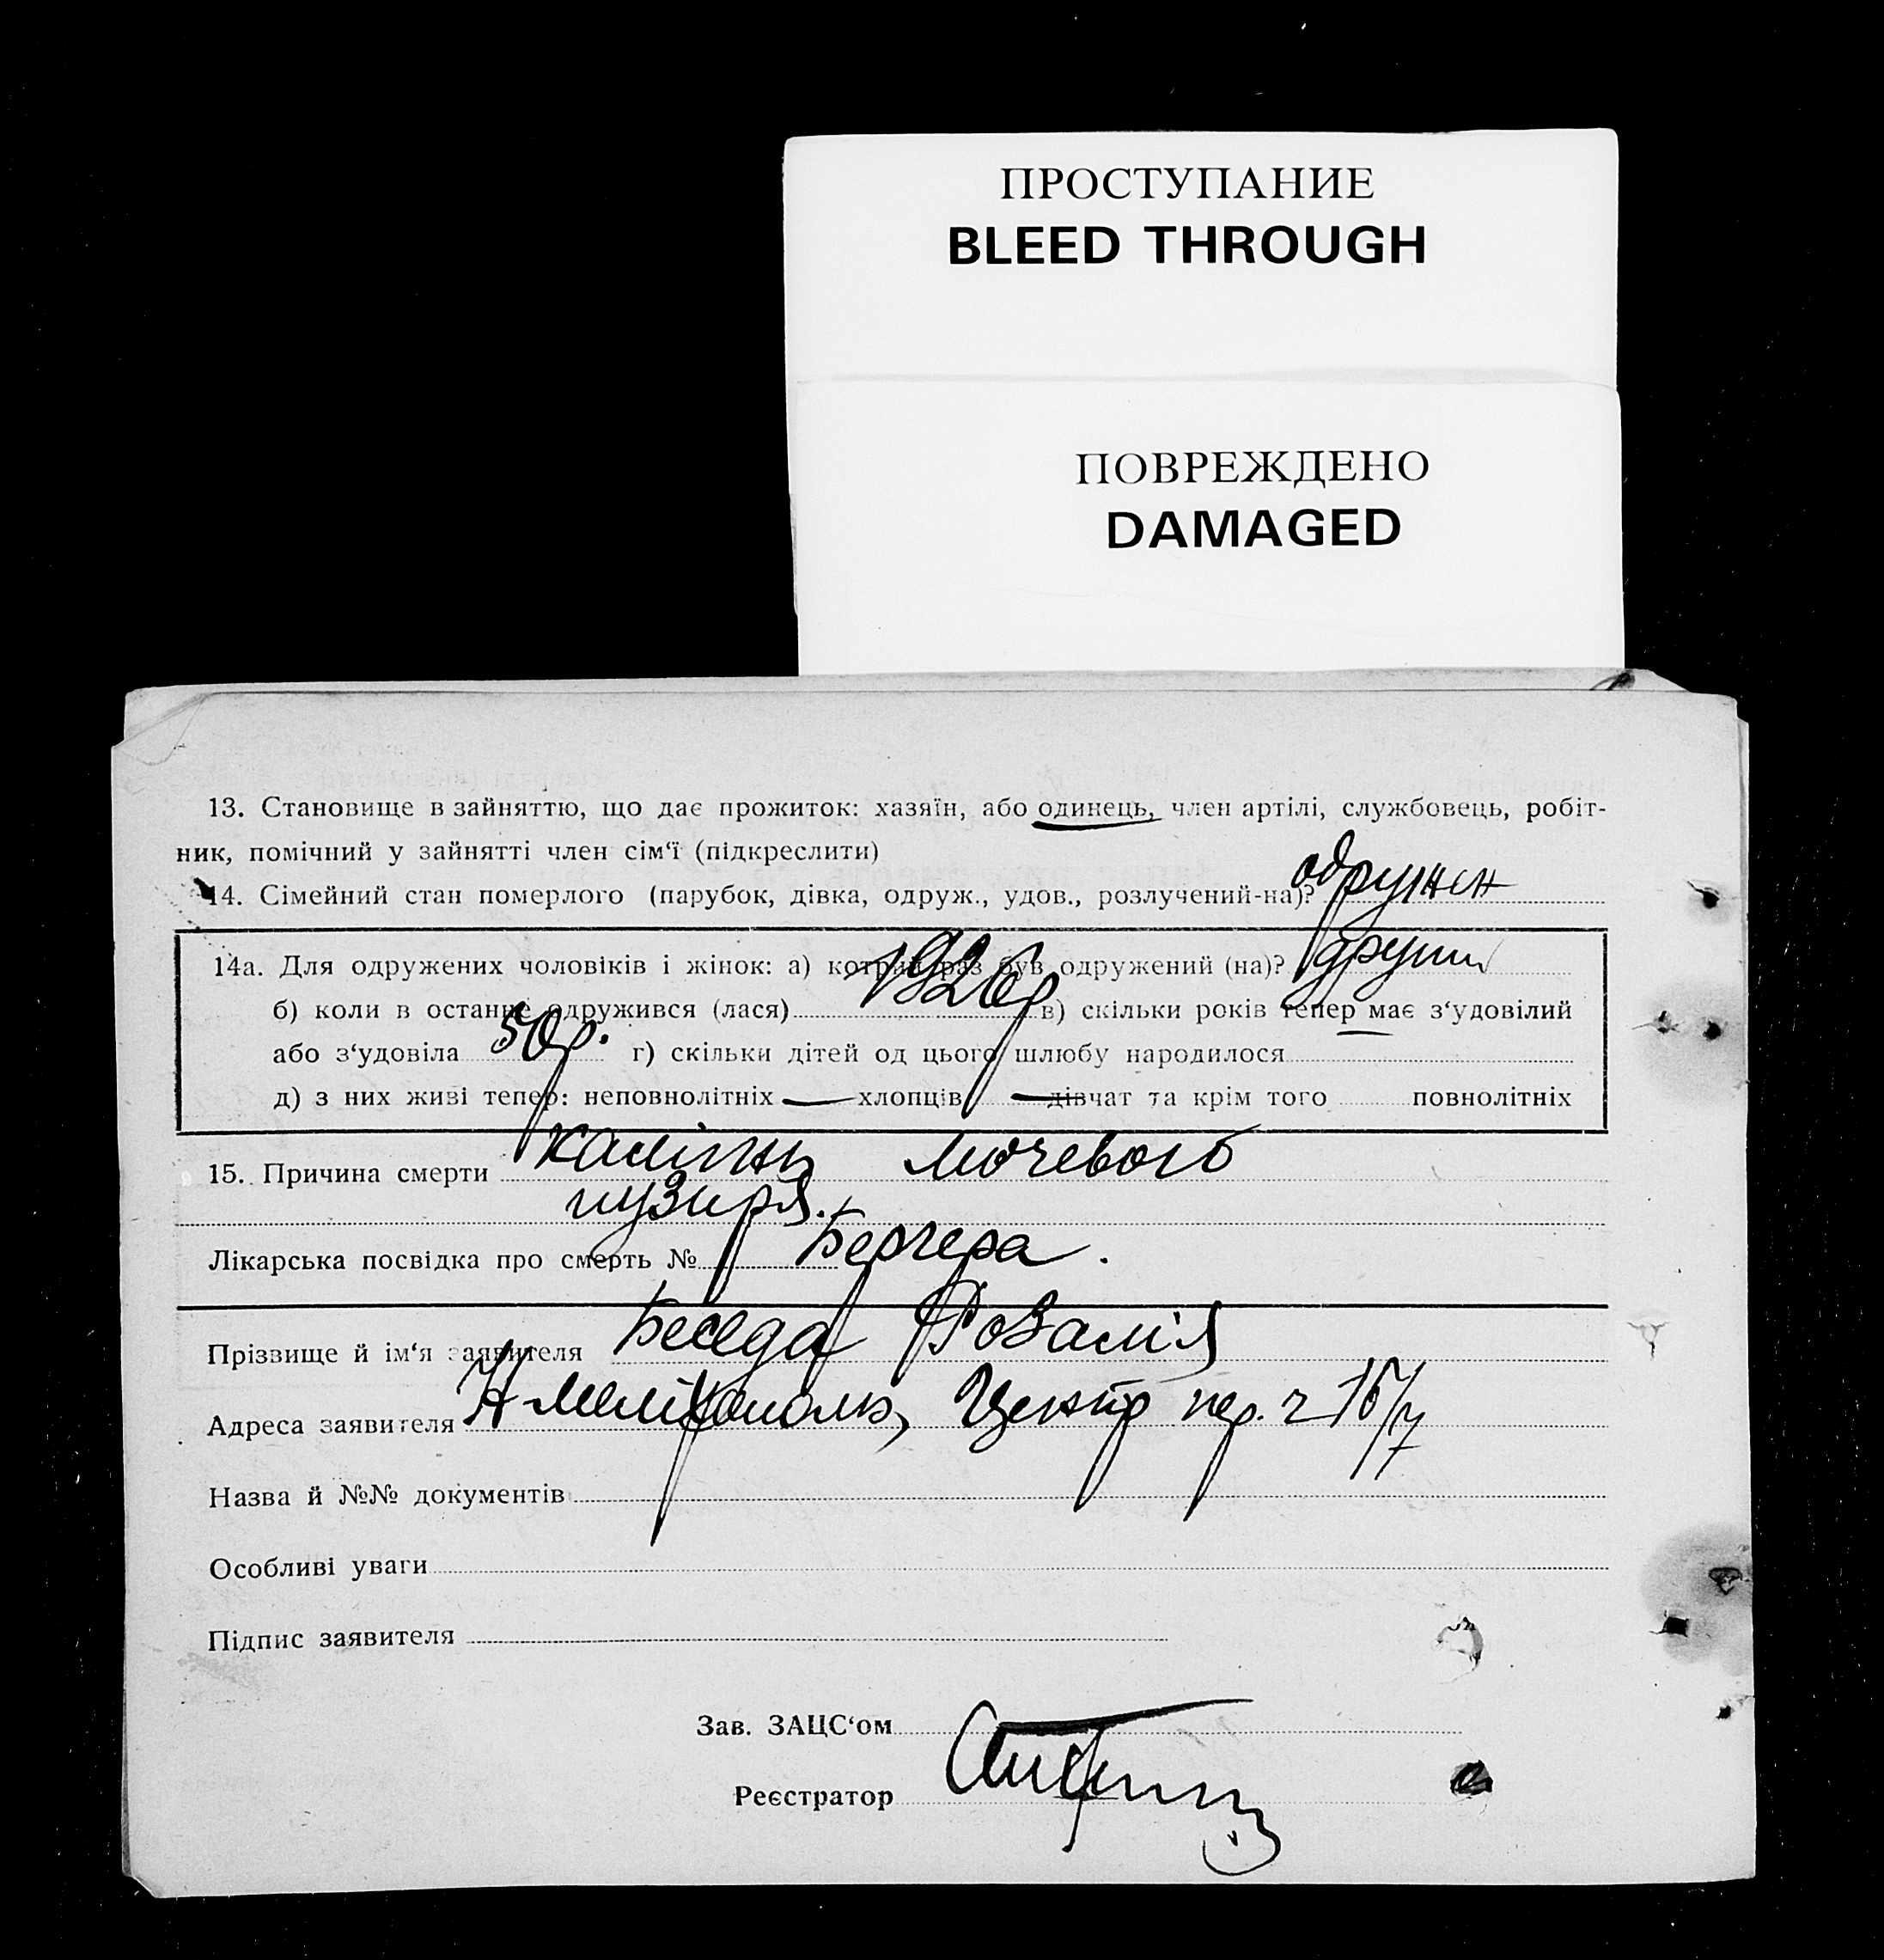 ПРОСТУПАНИЕ
BLEED THROUGH
ПОВРЕЖДЕНО
DAMAGED
13. Становище в зайняттю, що дає прожиток: хазяїн, або одинець, член артілі, службовець, робіт-
ник, помічний у зайнятті член сім‘ї (підкреслити)
14. Сімейний стан померлого (парубок, дівка, одруж., удов., розлучений-на)? одружен
14а. Для одружених чоловіків і жінок: а) котрий раз був одружений (на)? други
б) коли в останнє одружився (лася) 1926р в) скільки років тепер має з‘удовілий
або з‘удовіла 50р. г) скільки дітей од цього шлюбу народилося —
д) з них живі тепер: неповнолітніх — хлопців — дівчат та крім того повнолітніх
15. Причина смерти камінь мочевого
пузиря.
Лікарська посвідка про смерть № Бергера.
Прізвище й ім‘я заявителя Беседа Розалія
Адреса заявителя Центр пер. ч 16/7
Назва й №№ документів
Особливі уваги
Підпис заявителя
Зав. ЗАЦС‘ом
Реєстратор